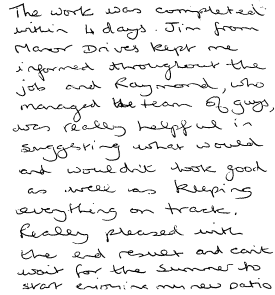 The work was completed
within 4 days. Jim from
Manor Drives kept me
informed throughout the
job and Raymond, who
managed the team of guys,
was really helpful in
suggesting what would
and wouldn't look good
as well as keeping
everything on track.
Really pleased with
the end result and can't
wait for the summer to
start enjoying my new patio